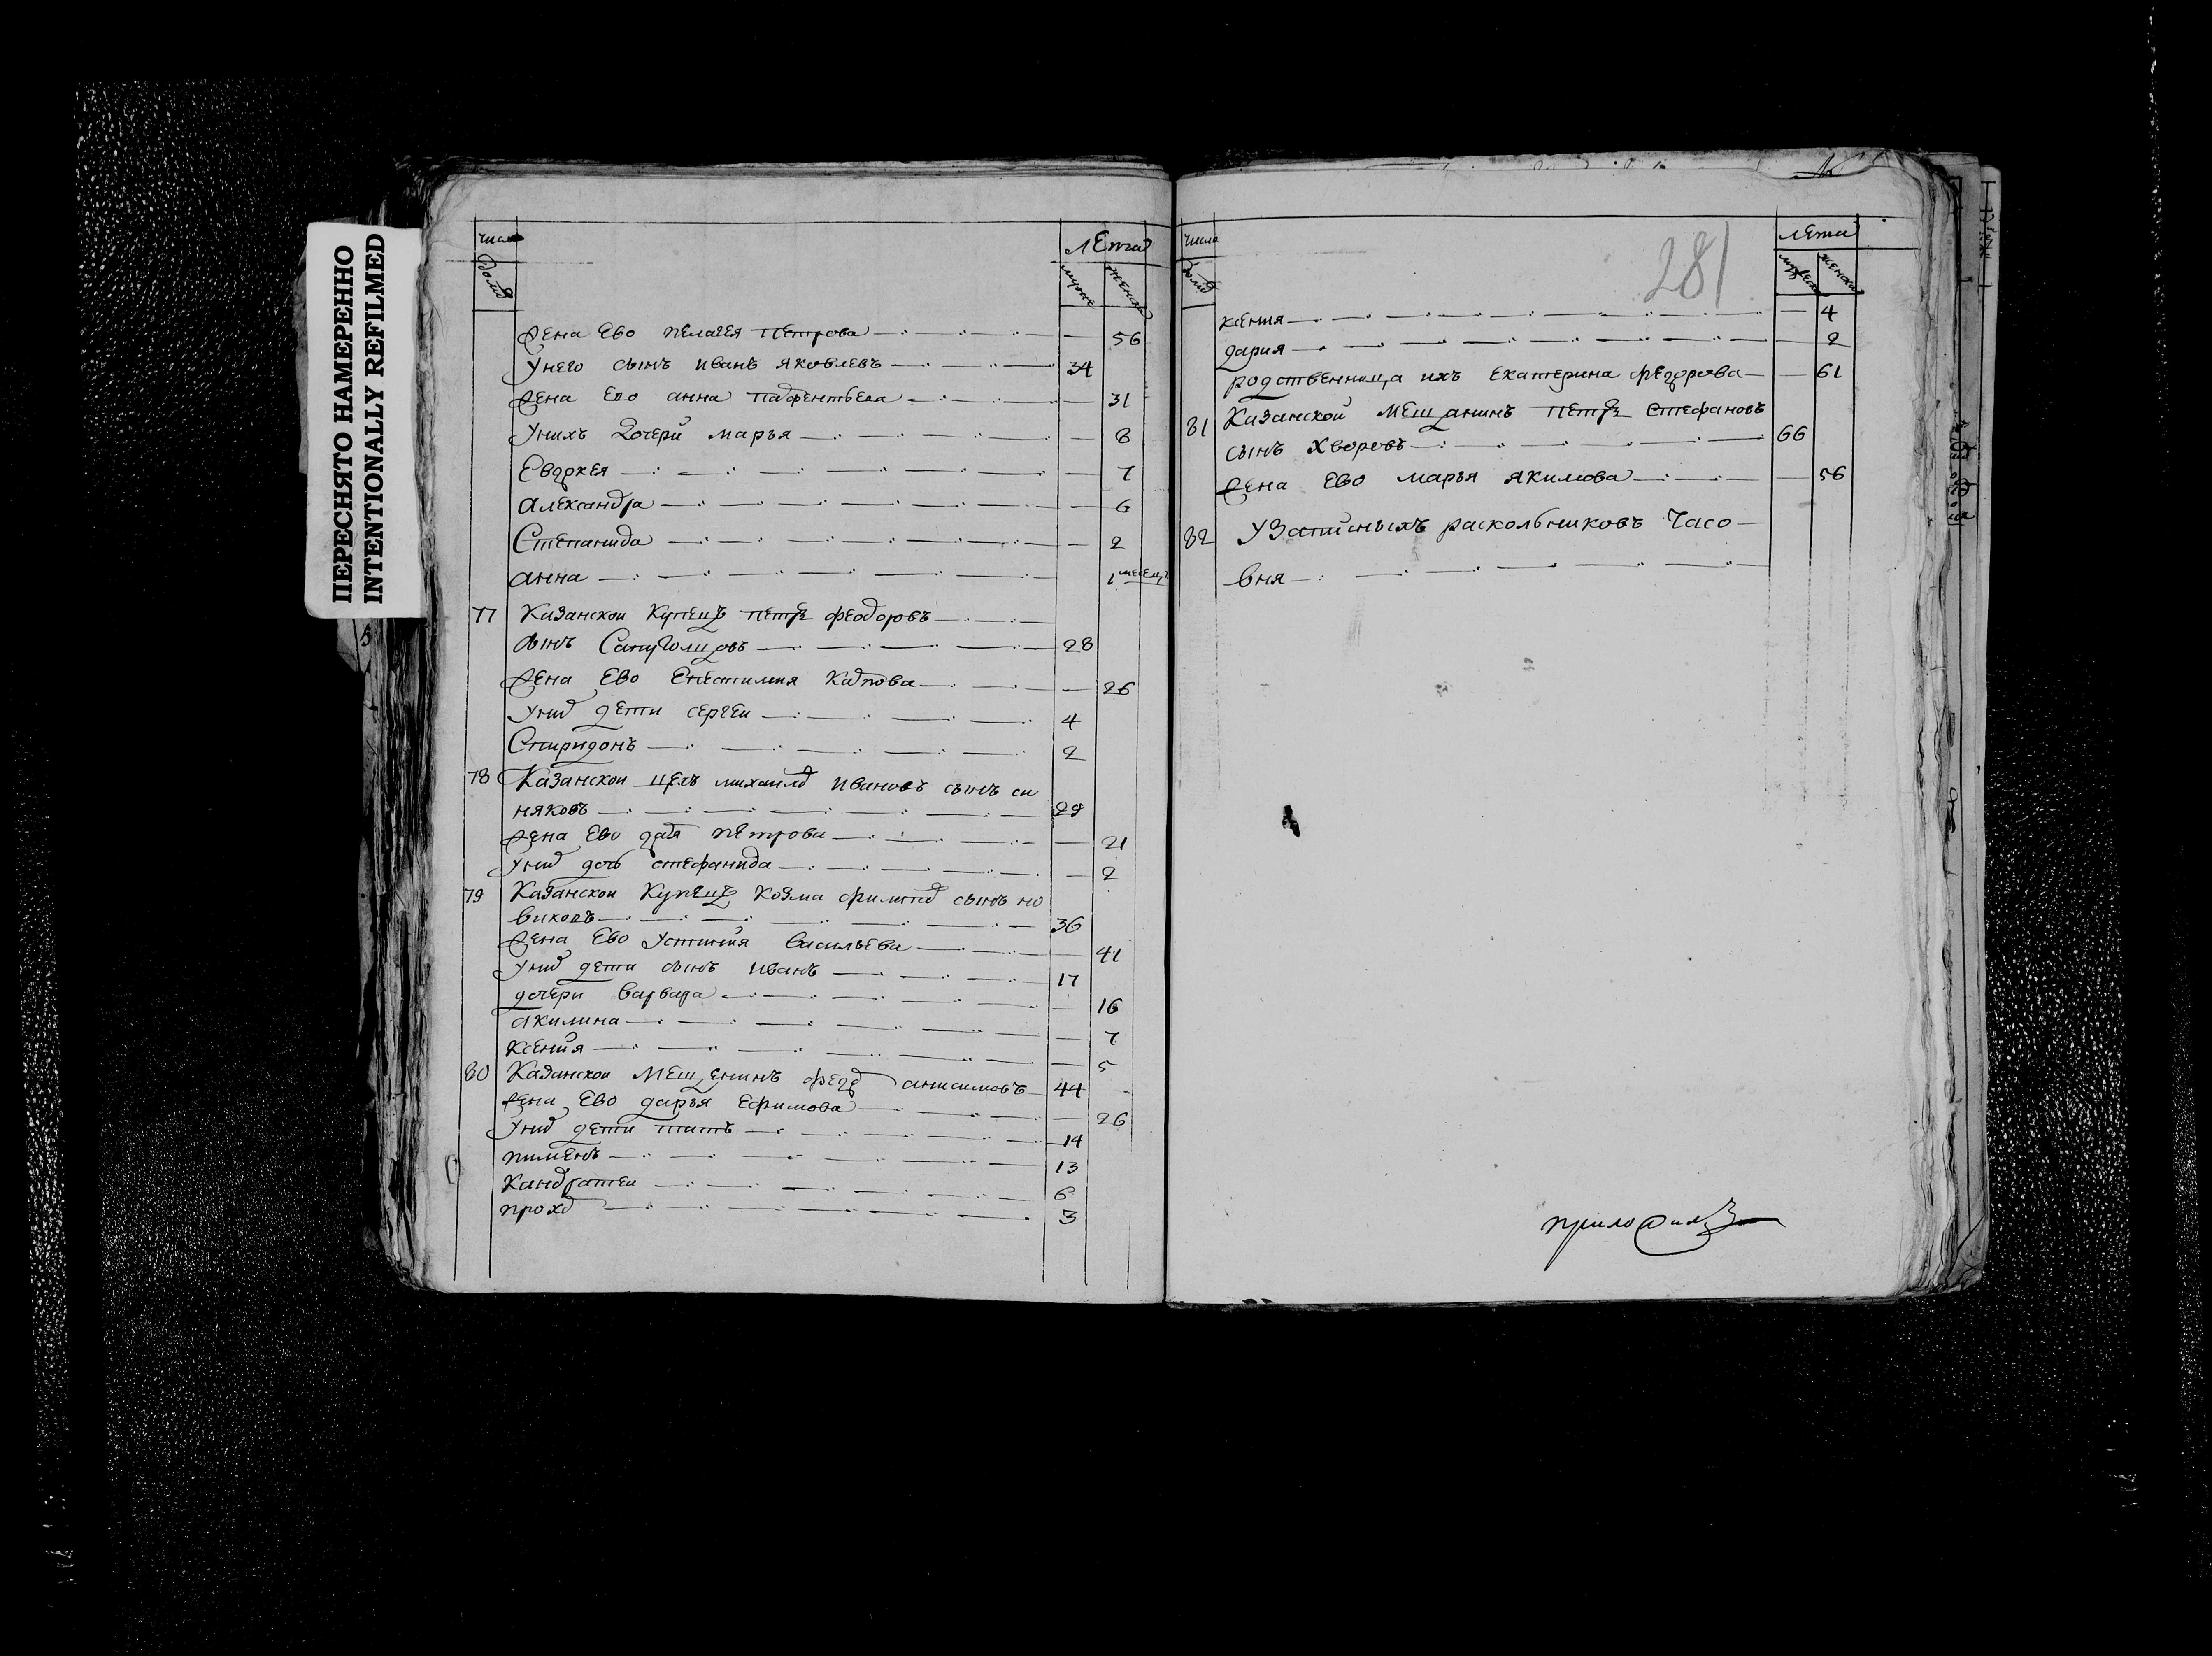 ПЕРЕСНЯТО НАМЕРЕННО
INTENTIONALLY REFILMED
числа лЕта
домо муже женск
жена Ево пелагея петрова — 56
Унего сынъ иванъ яковлевъ 34
жена Ево анна Парфентьева — 31
Унихъ дочери марья — 8
Евдокея — 7
александра — 6
Степанида — 2
анна 1 месецъ
77 Казанскои Купецъ петръ феодоровъ
сынъ 28
жена Ево Епестимия Карпова — 26
Уних дети сергеи 4
Спиридонъ 2
78 Казанскои цехъ михаило ивановъ сынъ си
няковъ 29
жена Ево дарья петрова — 21
Уних дочь стефанида — 2
79 Казанскои Купецъ козма филипов сынъ но
виковъ 36
жена Ево Устиния васильева — 41
Уних дети сынъ иванъ 17
дочери варвара — 16
акилина — 7
ксения — 5
80 Казанскои мещенинъ федор анисимовъ 44
жена Ево дарья Ефимова — 26
Уних дети титъ 14
пименъ 13
Кандратеи 6
прохор 3
281
числа лета
домо мужеска женска
ксения — 4
дария — 2
родственница ихъ екатерина федорова — 61
81 Казанской мещанинъ петръ стефановъ
сынъ хворовъ 66
жена Ево марья якимова — 56
82 раскольниковъ часо
вня
приложилъ